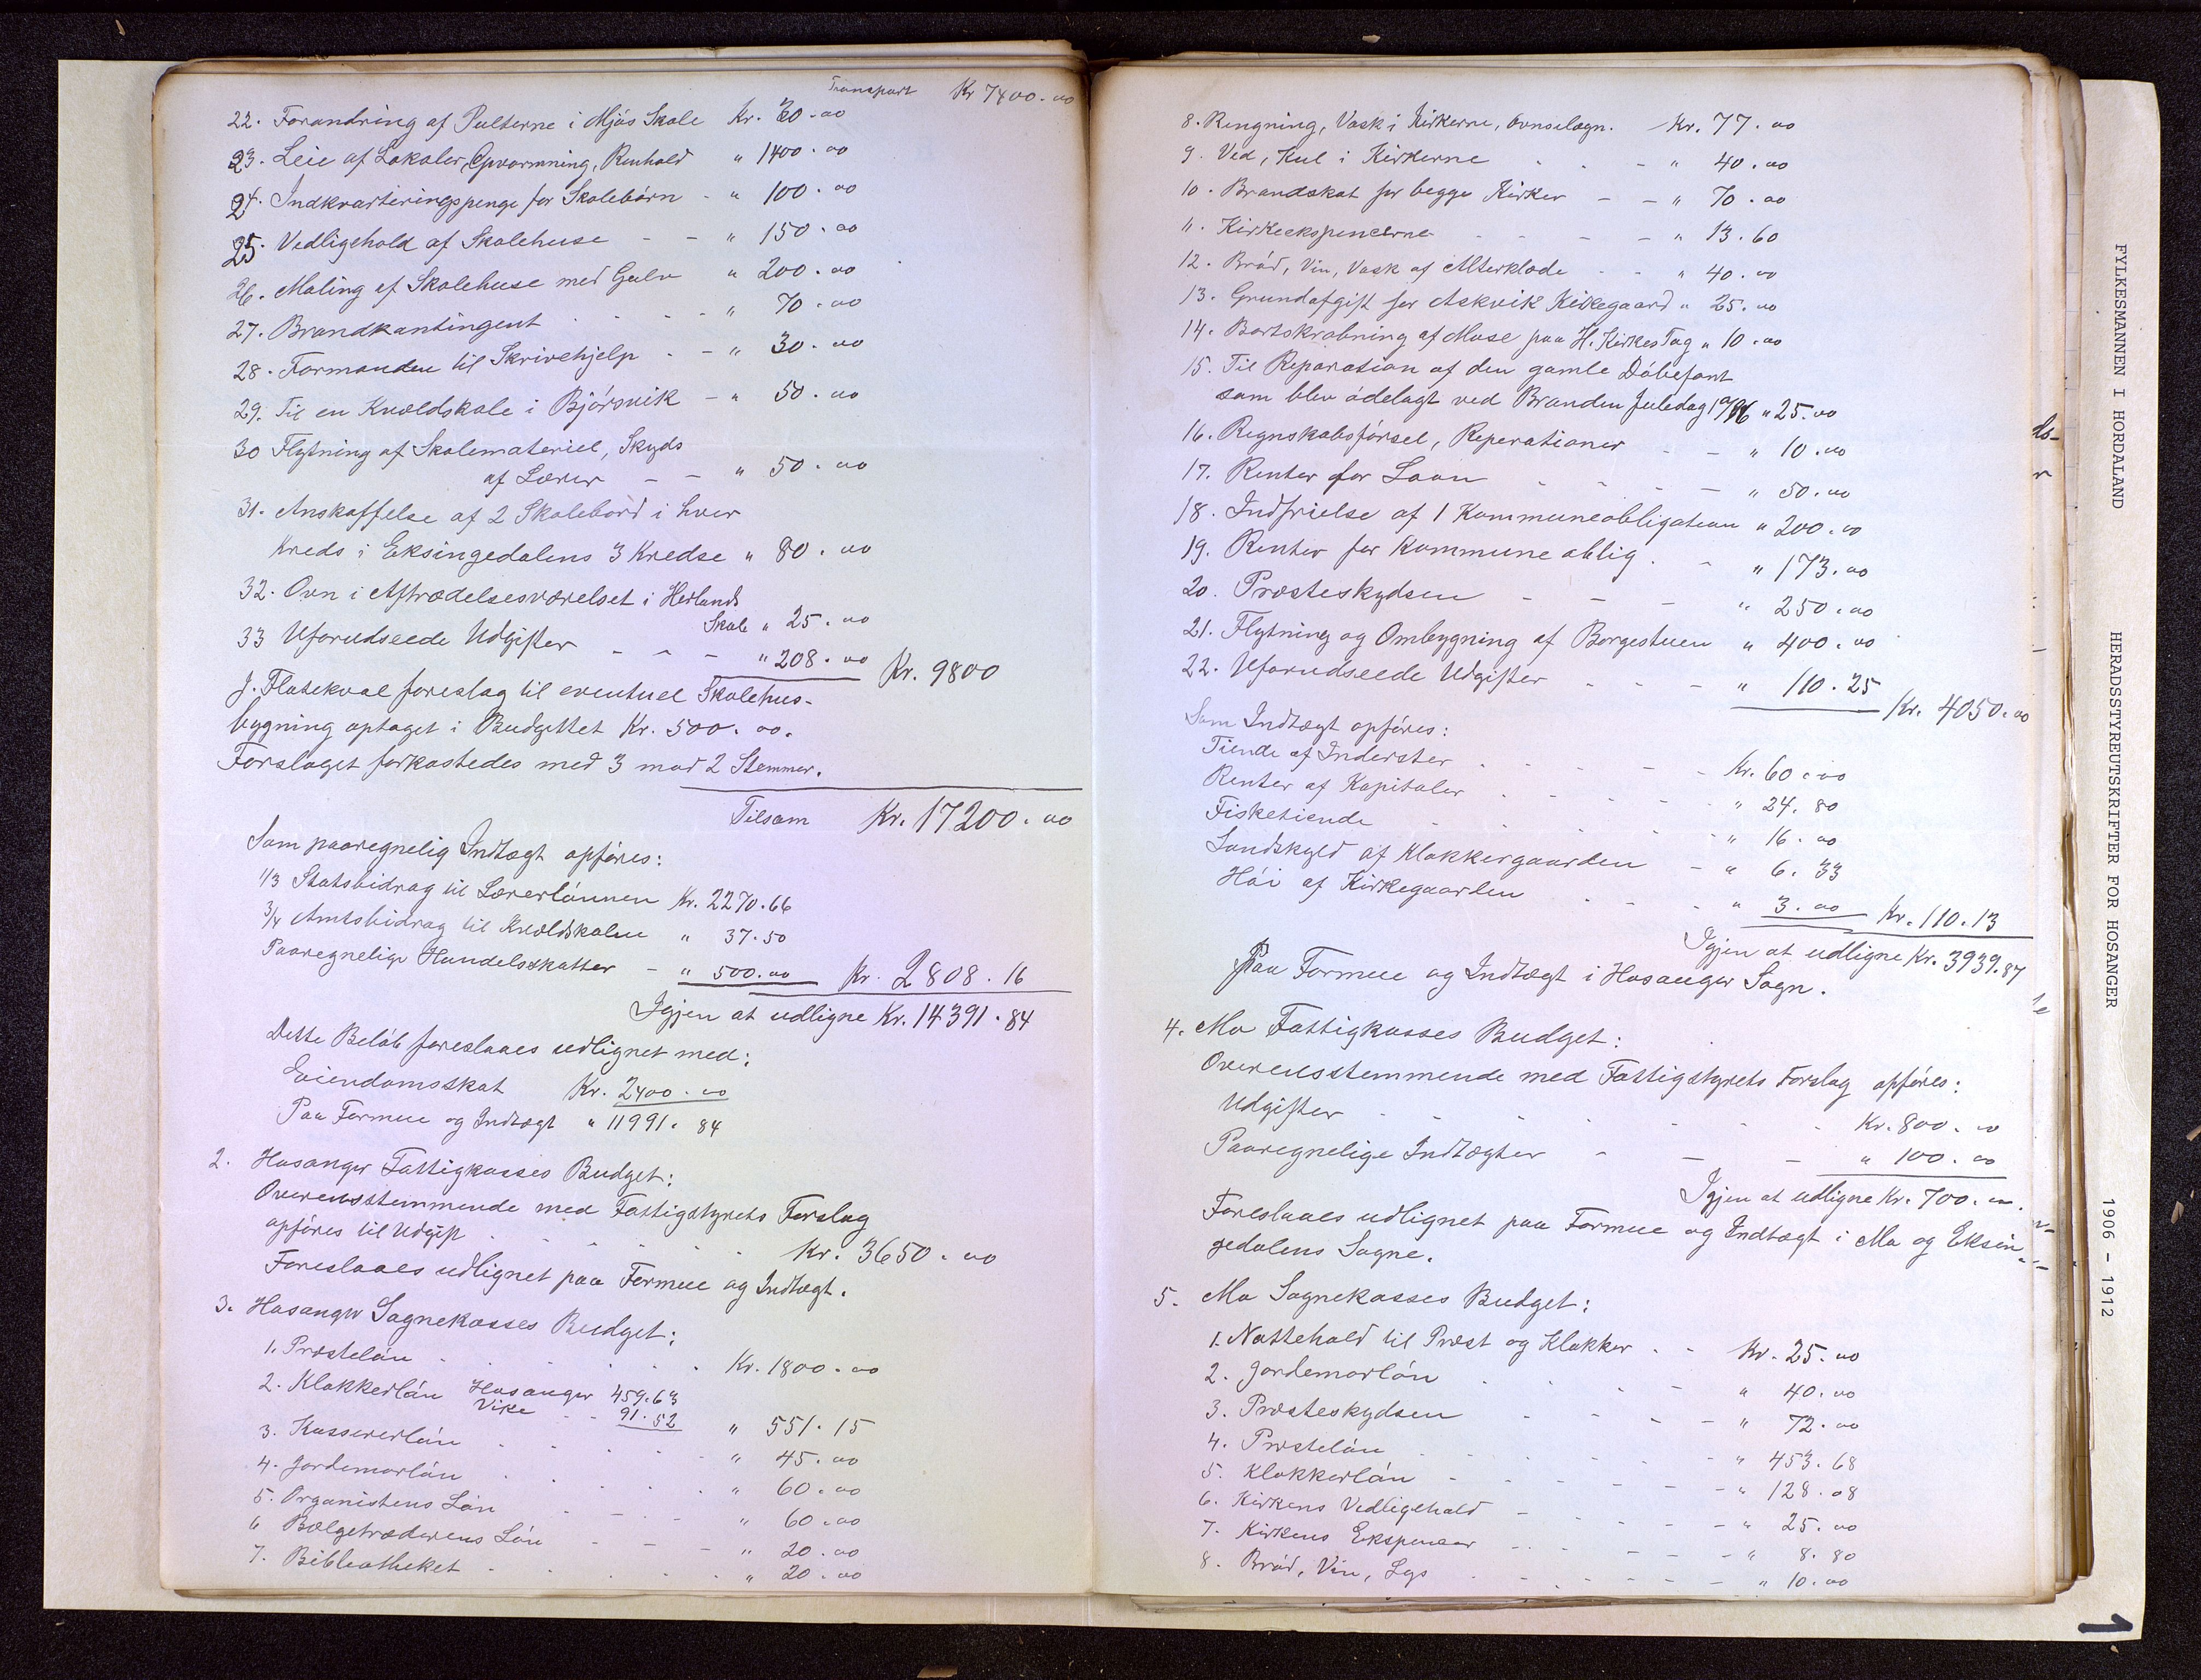 Transport Kr 7400.00
22. Forandring af Pulterne i Mjøs Skole Kr. 60.00
23. Leie af Lokaler, Opvarmning, Renhold " 1400.00
24. Indkvarteringspenge for Skolebørn - " 100.00
25. Vedligehold af Skolehuse - - " 150.00
26. Maling af Skolehuse med Gulv " 200.00
27. Brandkontingent " 70.00
28. Formanden til Skrivehjelp - " 30.00
29. Til en Kvældskole i Bjørsvik - " 50.00
30 Flytning af Skolemateriel, Skyds
af Lærer - - " 50.00
31. Anskaffelse af 2 Skolebord i hver
Kreds i Eksingedalens 3 Kredse " 80.00
32. Ovn i Aftrædelsesværelset i Herlands
Skole " 25.00
33 Uforudseede Udgifter - - - " 208.00 Kr. 9800
J. Flatekval foreslog til eventuel Skolehus-
bygning optaget i Budgettet Kr. 500.00.
Forslaget forkastedes med 3 mod 2 Stemmer.
Tilsam Kr. 17200.00
Som paaregnelig Indtægt opføres:
1/3 Statsbidrag til Lærerlønnen Kr. 2270.66
3/4 Amtsbidrag til Kvældskolen " 37.50
Paaregnelige Handelsskatter - " 500.00 Kr. 2808.16
Igjen at udligne Kr. 14391.84
Dette Beløb foreslaaes udlignet med:
Eiendomsskat Kr. 2400.00
Paa Formue og Indtægt " 11991.84
2. Hosanger Fattigkasses Budget:
Overensstemmende med Fattigstyrets Forslag
opføres til Udgift Kr. 3650.00
Foreslaaes udlignet paa Formue og Indtægt.
3. Hosanger Sognekasses Budget:
1. Præsteløn Kr. 1800.00
2. Klokkerløn Hosanger 459.63
Vike 91.52 " 551.15
3. Kassererløn " 45.00
4. Jordemorløn " 60.00
5. Organistens Løn " 60.00
6 Bælgetræderens Løn " 20.00
7. Bibliotheket " 20.00
8. Rengning, Vask i Kirkerne, Ovnslægn. Kr. 77.00
9. Ved, Kul i Kirkerne " 40.00
10. Brandskat for begge Kirker - - " 70.00
11. Kirkeekspencerne " 13.60
12. Brød, Vin, Vask af Alterklæde " 40.00
13. Grundafgift for Askvik Kirkegaard " 25.00
14. Bortskrabning af Mose paa H. Kirkes Tag " 10.00
15. Til Reparation af den gamle Døbefont
som blev ødelagt ved Branden Juledag " 25.00
16. Regnskabsførsel, Reperationer " 10.00
17. Renter for Laan " 50.00
18. Indfrielse af 1 Kommuneobligation " 200.00
19. Renter for Kommune oblig. " 173.00
20. Præsteskydsen - - - " 250.00
21. Flytning og Ombygning af Borgestuen " 400.00
22. Uforudseede Udgifter " 110.25
Kr. 4050.00
Som Indtægt opføres:
Tiende af Inderster Kr. 60.00
Renter af Kapitaler " 24.80
Fisketiende " 16.00
Landskyld af Klokkergaarden - " 6.33
Høi af Kirkegaarden " 3.00 Kr. 110.13
Igjen at udligne Kr. 3939.87
Paa Formue og Indtægt i Hosanger Sogn.
4. Mo Fattigkasses Budget:
Overensstemmende med Fattigstyrets Forslag opføres:
Udgifter Kr. 800.00
Paaregnelige Indtægter - - - " 100.00
Igjen at udligne Kr. 700.00.
Foreslaaes udlignet paa Formue og Indtægt i Mo og Eksin-
gedalens Sogne.
5. Mo Sognekasses Budget:
1. Nattehold til Præst og Klokker Kr. 25.00
2. Jordemorløn " 40.00
3. Præsteskydsen " 72.00
4. Præsteløn " 453.68
5. Klokkerløn " 128.08
6. Kirkens Vedligehold " 25.00
7. Kirkens Ekspencer " 8.80
8. Brød, Vin, Lys " 10.00
FYLKESMANNEN I HORDALAND HERADSSTYREUTSKRIFTER FOR HOSANGER 1906 - 1912
1